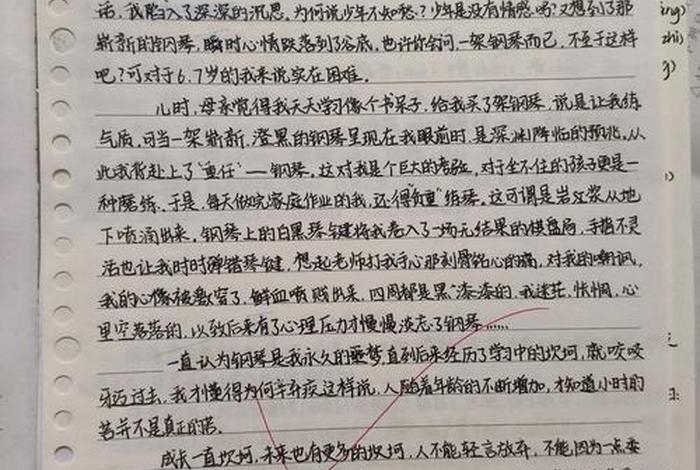 话，我陷入了深深的沉思。为何说少年不知愁？少年是没有情感吗？又想到了那
崭新的钢琴，瞬时心情跌落到了谷底，也许你会问，一架钢琴而已，不至于这样
吧？可对于6.7岁的我来说实在困难。
儿时，母亲觉得我天天学习像个书呆子，给我买了架钢琴，说是让我练
气质，可当一架崭新，澄黑的钢琴呈现在我眼前时，是深渊降临的预兆。从
此我背赴上了"重任"——钢琴。这对我是个巨大的考验，对于坐不住的孩子更是一
种磨练，于是，每天做完家庭作业的我，还得"负重"练琴。这可谓是岩浆从地
下喷涌出来，钢琴上的白黑琴键将我卷入了一场无结果的棋盘局，手指不灵
活也让我时时弹错琴键，想起老师打我手心那刻骨铭心的痛，对我的嘲讽，
我的心像被数窄了，鲜血喷溅出来，四周都是黑漆漆的，我迷茫，怅惘，心
里空落落的，以致后来有了心理压力才慢慢淡忘了钢琴……
一直认为钢琴是我永久的噩梦，直到后来经历了学习中的坎坷，就咬咬
牙迈过去，我才懂得为何辛弃疾这样说，人随着年龄的不断增加，才知道小时的
苦并不是真正的苦。
成长一直坎坷，未来也有更多的坎坷，人不能轻言放弃，不能因为一点委
ing)
zhi)
g)